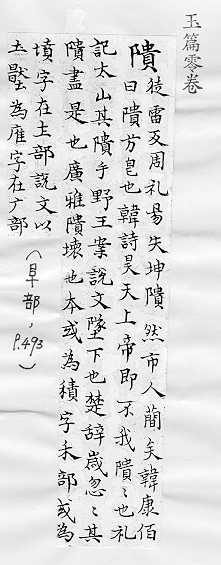 玉篇零卷
隤雷反周礼昜失坤隤然市人蕳矣韓康佰
曰隤方皃也韓詩昊天上帝即不我隤〻也礼
記太山其隤手野王案說文墜下也楚辭歲忽〻其
隤盡是也廣雅隤壞也本或為積字禾部或為
墳字在土部說文以
圡為字在广部
(阜部, P.493)